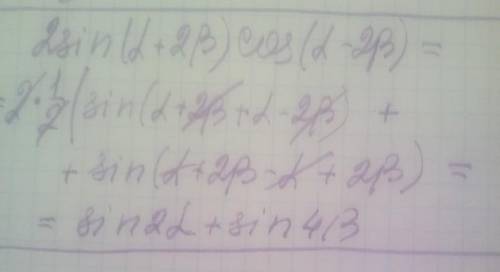 2sin(α+2β)cos(α-2β)=
=2·1/2(sin(α+2β+α-2β) +
+ sin(α+2β-α+2β) =
= sin2α+sin4β